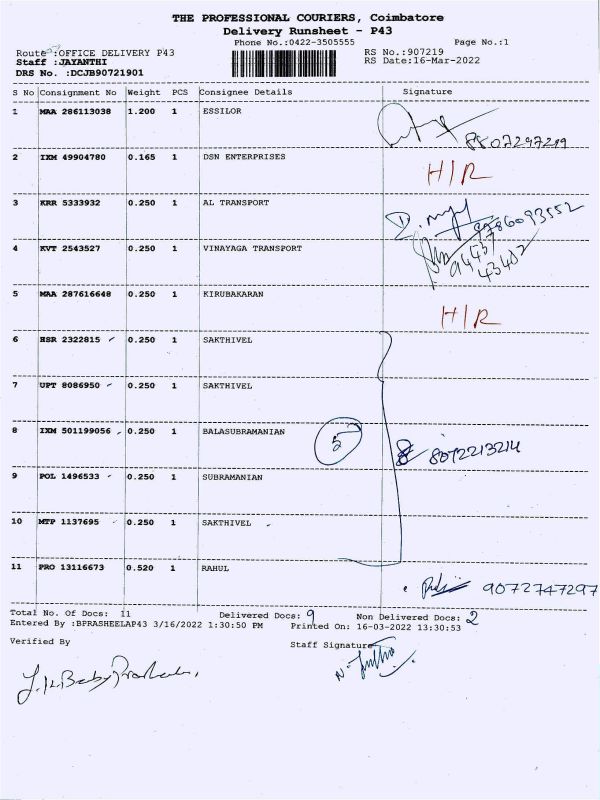 THE PROFESSIONAL COURIERS, Coimbatore
Delivery Runsheet - P43
Phone No.:0422-3505555 Page No.:1
Route :OFFICE DELIVERY P43 RS No.:907219
Staff :JAYANTHI RS Date:16-Mar-2022
DRS No. :DCJB90721901
S No Consignment No Weight PCS Consignee Details Signature
1 MAA 286113038 1.200 1 ESSILOR
2 IXM 49904780 0.165 1 DSN ENTERPRISES H/R
3 KRR 5333932 0.250 1 AL TRANSPORT 9786093552
4 KVT 2543527 0.250 1 VINAYAGA TRANSPORT
5 MAA 287616648 0.250 1 KIRUBAKARAN H/R
6 HSR 2322815 0.250 1 SAKTHIVEL
7 UPT 8086950 0.250 1 SAKTHIVEL
8 IXM 501199056 0.250 1 BALASUBRAMANIAN 5 8072213214
9 POL 1496533 0.250 1 SUBRAMANIAN
10 MTP 1137695 0.250 1 SAKTHIVEL
11 PRO 13116673 0.520 1 RAHUL 9072747297
Total No. Of Docs: 11 Delivered Docs: 9 Non Delivered Docs: 2
Entered By :BPRASHEELAP43 3/16/2022 1:30:50 PM Printed On: 16-03-2022 13:30:53
Verified By Staff Signature